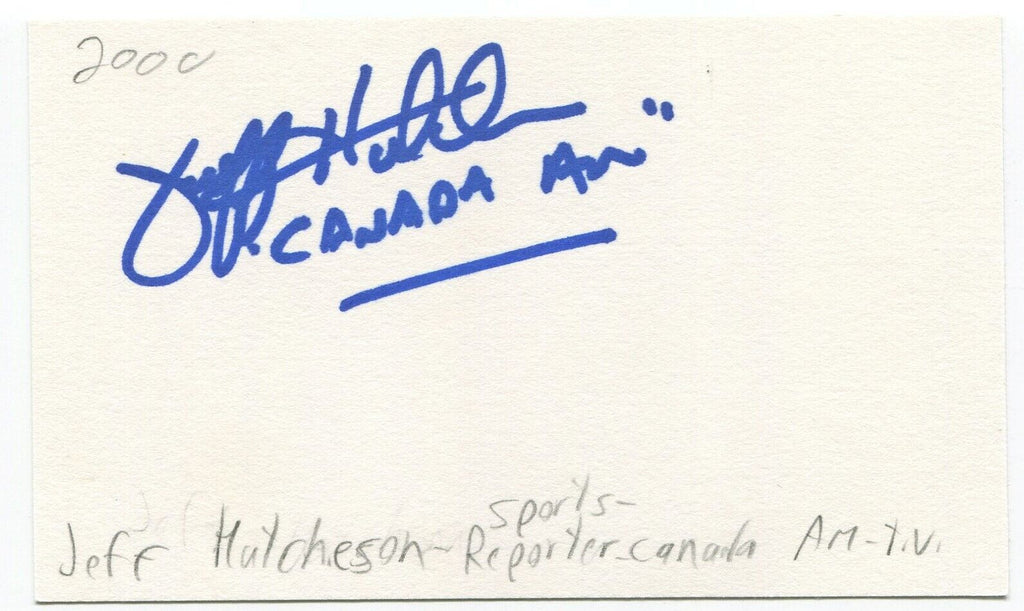 2000
Jeff Hutcheson
"CANADA AM"
sports-
Jeff Hutcheson-Reporter-canada AM-T.V.